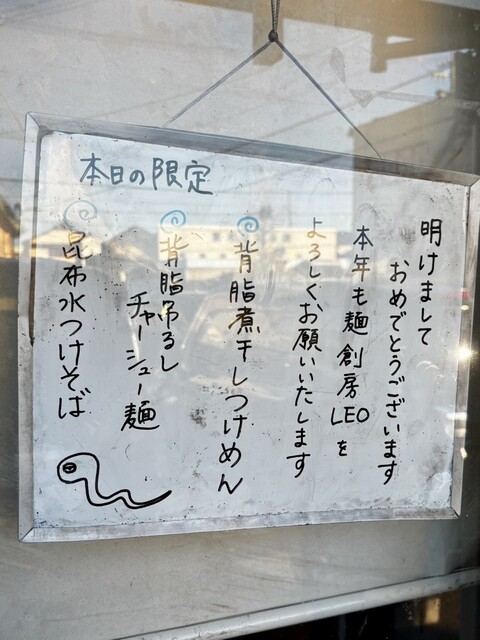 本日の限定
明けまして
おめでとうございます
本年も麺創房LEOを
よろしくお願いいたします
背脂煮干しつけめん
背脂吊るし
チャーシュー麺
昆布水つけそば